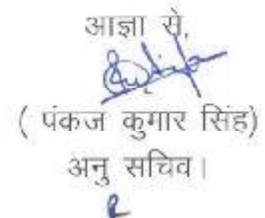 आज्ञा से,
( पंकज कुमार सिंह)
अनु सचिव।